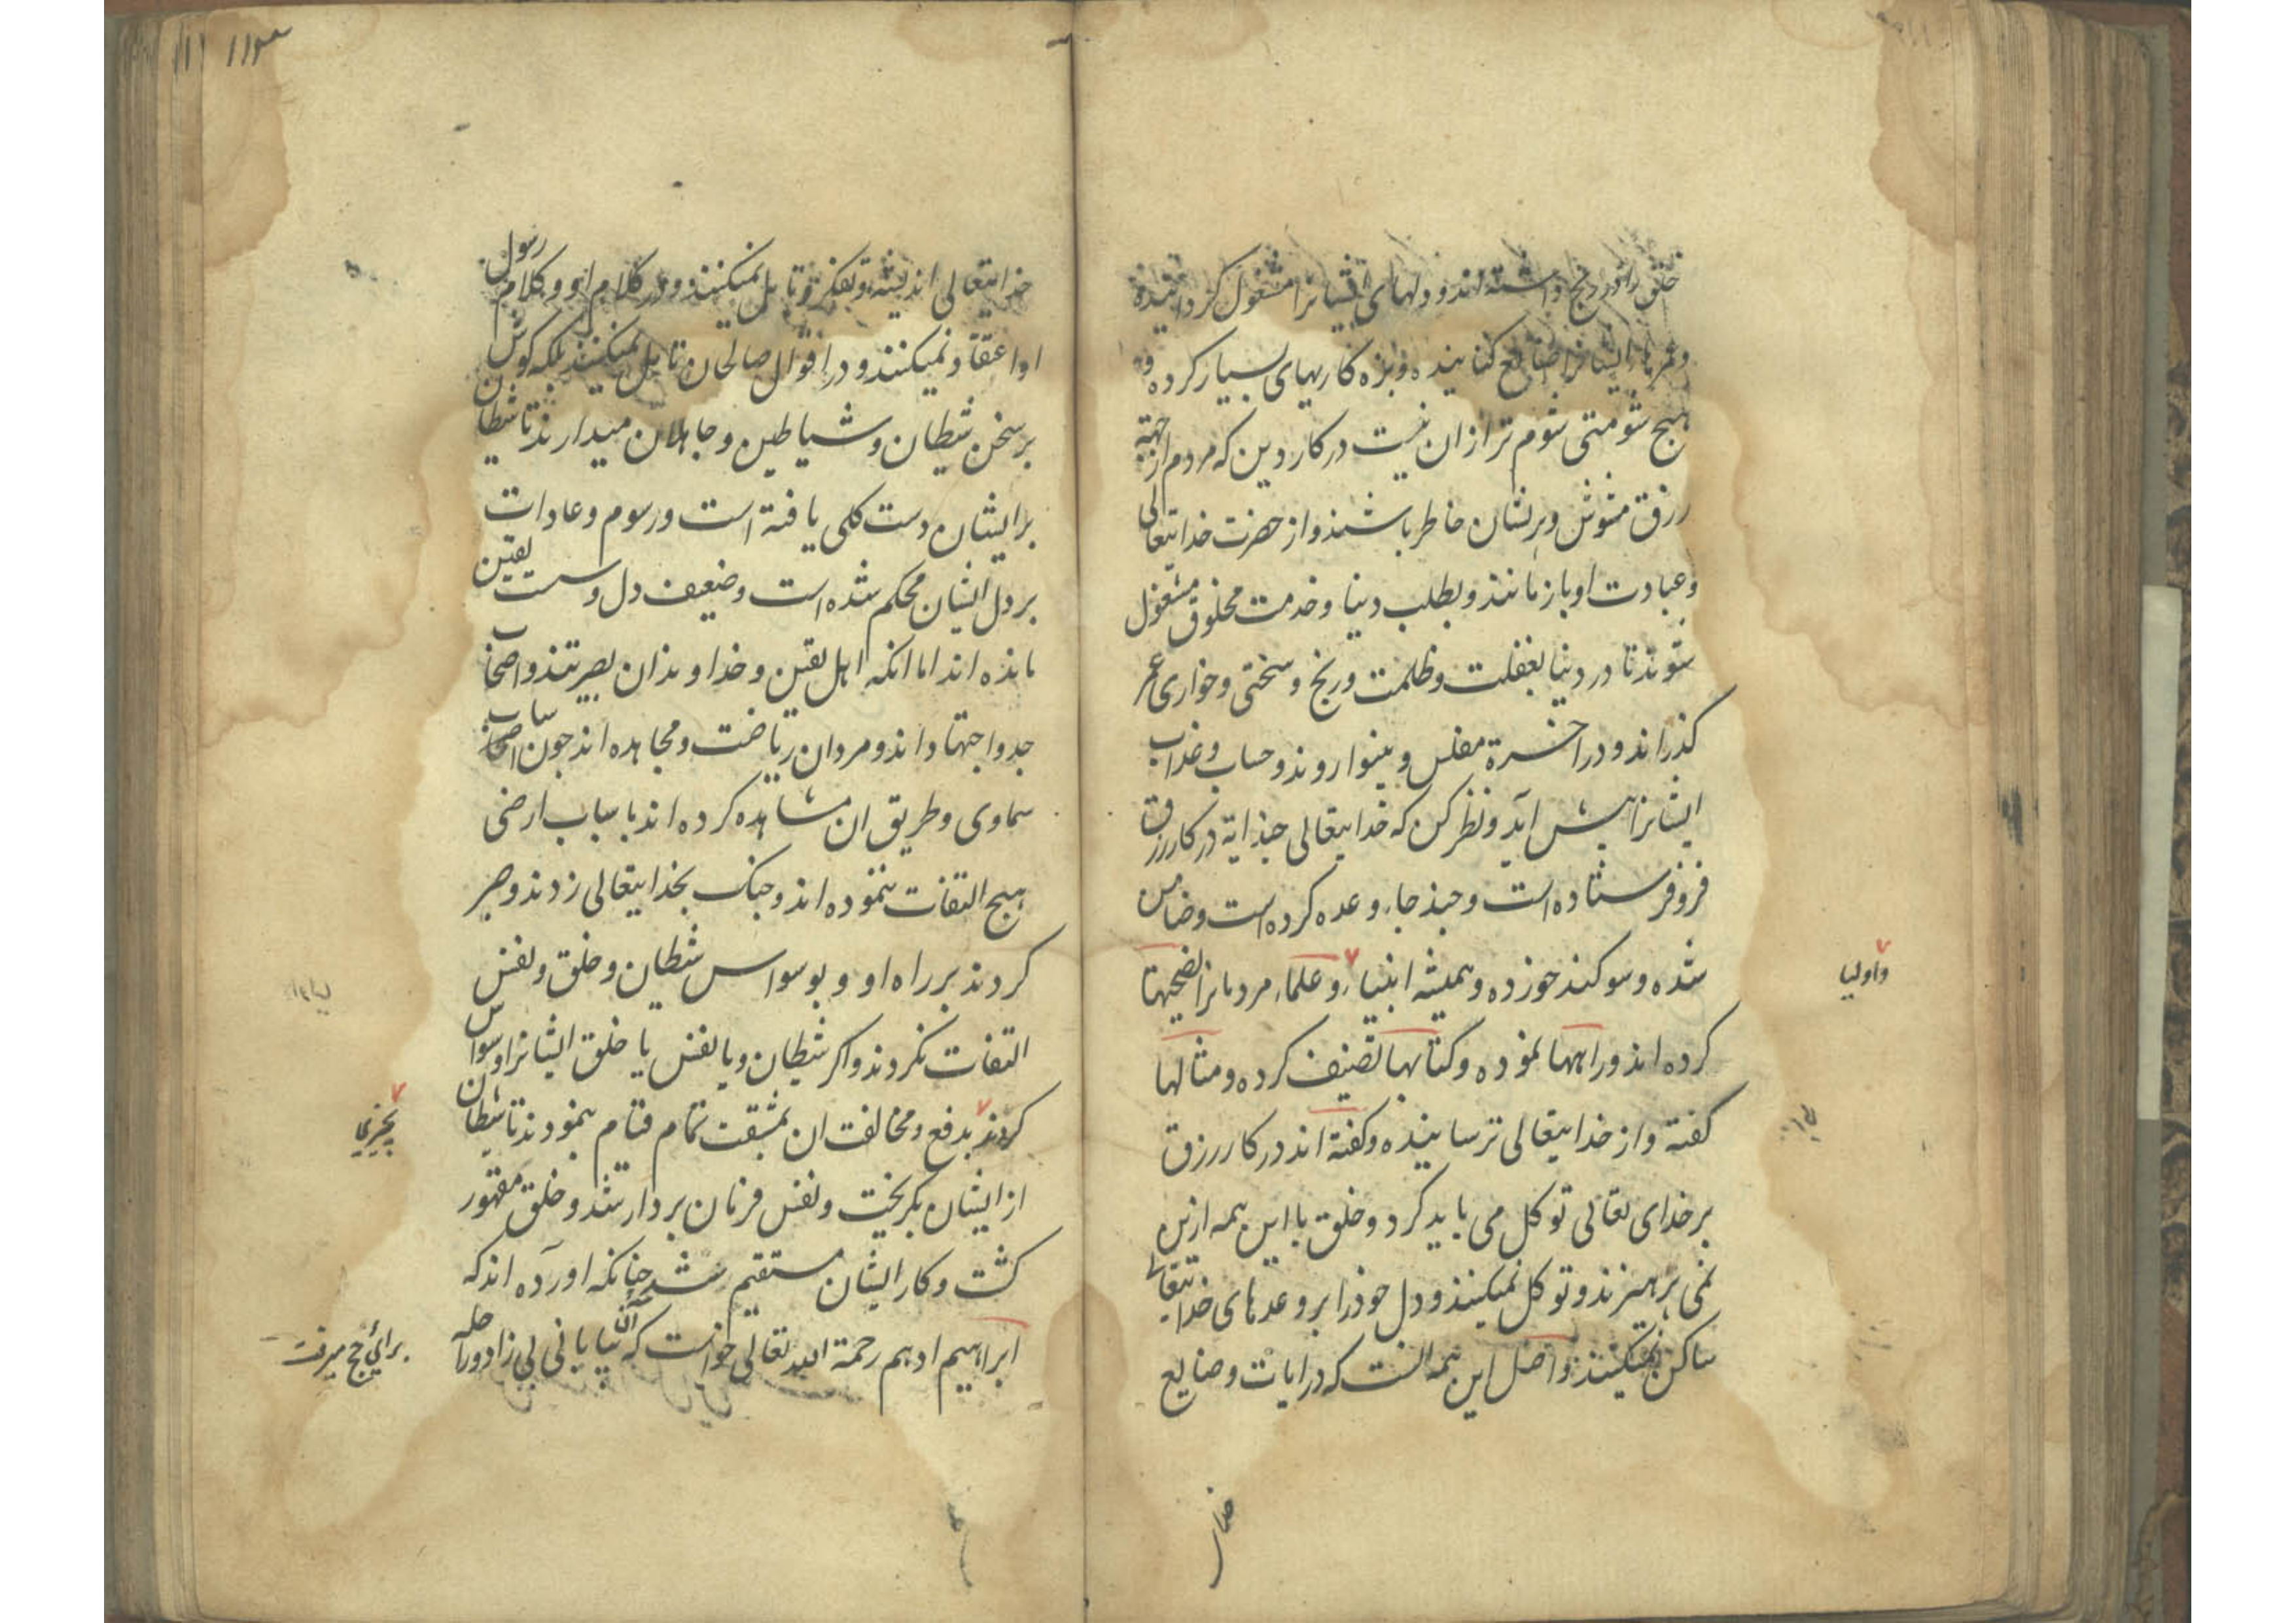 خلق را در رنج داشته اند و دلهای ایشانرا مشغول کردانیده
و عمرهاء ایشانرا ضایع کنانیده و بزه کاریهای بسیار کرده و
هیچ شومتی شوم تر ازان نیست در کار دین که مردم از جهة
رزق مشوش و پریشان خاطر باشند و از حضرت خدایتعالی
و عبادت او باز مانند و بطلب دنیا و خدمت مخلوق مشغول
شوند تا در دنیا بغفلت و ظلمت و رنج و سختی و خواری عمر
کذرانند و در اخرة مفلس و بینوا روند و حساب و عذاب
ایشانرا پیش آید و نظر کن که خدایتعالی چند ایة در کار رزق
فرو فرستاده است و چند جاء وعده کرده است و ضامن
شده و سوکند خورده و همیشه انبیاء و علماء مردمانرا نصیحتها
واولیا
کرده اند و راهها نموده و کتابها تصنیف کرده و مثالها
کفته و از خدایتعالی ترسانیده و کفته اند در کار رزق
بر خدای تعالی توکل می باید کرد و خلق با این همه ازین
نمی پرهیزند و توکل نمیکنند و دل خود را بر وعدهای خدایتعالی
ساکن نمیکنند و اصل این همه انست که در ایات و صنایع
خدا
سورا ۱۱۱
خدایتعالی اندیشه و تفکر و تامل نمیکنند و در کلام او و کلام رسول
او اعتقاد نمیکنند و در اقوال صالحان تامل نمیکنند بلکه کوش
بر سخن شیطان و شیاطین و جاهلان میدارند تا شیطان
بر ایشان دست کلی یافته است و رسوم و عادات
بر دل ایشان محکم شده است و ضعیف دل و سست یقین
مانده اند اما انکه اهل یقین و خداوندان بصیرتند و اصحاب
جد و اجتهاد اند و مردان ریاضت و مجاهده اند چون اسباب
سماوی و طریق ان مشاهده کرده اند باسباب ارضی
هیچ التفات ننموده اند و چنک بخدایتعالی زدند و صبر
کردند بر راه او و بوسواس شیطان و خلق و نفس
التفات نکردند و اکر شیطان و یا نفس یا خلق ایشانرا وسواس
کردند بدفع و مخالفت ان بمشقت تمام قیام نمودند تا شیطان
بچیزی
از ایشان بکریخت و نفس فرمان بردار شد و خلق مقهور
کشت و کار ایشان مستقیم شد چنانکه اورده اند که
ابراهیم ادهم رحمة الله تعالی خواست که آن بیابانی بی زاد و راحله
برای حج میرفت